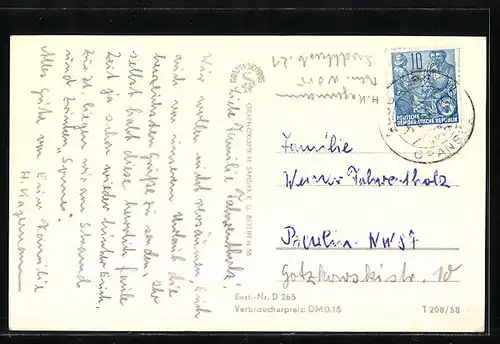 Liebe Familie Fahrentholz!
Wir wollen nicht versäumen Euch
auch von unserem Urlaub die
herzlichsten Grüße zu senden. Ihr
selbst habt diese herrlich faule
Zeit ja schon wieder hinter Euch.
Zur Zt. liegen wir am Strand
und trinken „Sonne“.
Alles Gute von Eurer Familie
H. Hagemann
GRAPHOKOPIE H. SANDER K. G. BERLIN N 58
H. Hagemann
10
DEUTSCHE
DEMOKRATISCHE REPUBLIK
Familie
Werner Fahrentholz
Berlin NW 87
Gotzkowskistr. 10
Best.-Nr. D 265
Verbraucherpreis: DM 0.15
T 208/58